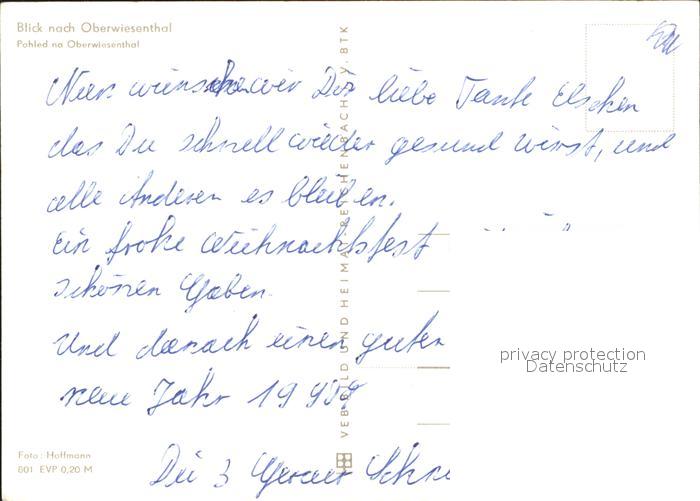 Blick nach Oberwiesenthal
Pohled na Oberwiesenthal
Nun wünschen wir Dir liebe Tante Elschen
das Du schnell wieder gesund wirst, und
alle Anderen es bleiben.
Ein frohe Weihnachtsfest
schönen Gaben.
Und danach einen guten
neue Jahr 19
Die 3
VEB BILD UND HEIMAT REICHENBACH I. V. BTK
privacy protection
Datenschutz
Foto: Hoffmann
801 EVP 0,20 M